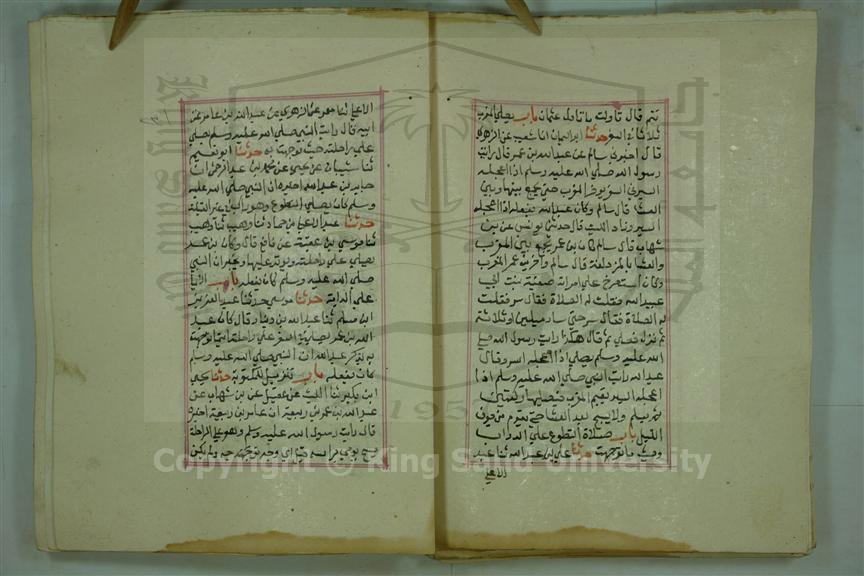 تتم قال تاولت ما تاول عثمان باب يصلي المغرب
ثلاثا في السفر حدثنا ابو اليمان انا شعيب عن الزهري
قال اخبرني سالم عن عبد الله بن عمر قال رايت
رسول الله صلي الله عليه وسلم اذا اعجله
السير في السفر يؤخر المغرب حتي يجمع بينها وبين
العشا قال سالم وكان عبد الله يفعله اذا اعجله
السير وزاد الليث قال حدثني يونس عن بن
شهاب قال سالم كان بن عمر يجمع بين المغرب
والعشا بالمزدلفة قال سالم واخر بن عمر المغرب
وكان استصرخ علي امراته صفية بنت ابي
عبيد فقلت له الصلاة فقال سر فقلت
له الصلاة فقال سر حتي سار ميلين او ثلاثة
ثم نزل فصلي ثم قال هكذا رايت رسول الله صلي
الله عليه وسلم يصلي اذا اعجله السير وقال
عبد الله رايت النبي صلي الله عليه وسلم اذا
اعجله السير يقيم المغرب فيصليها
ثم يسلم ولا يسبح بعد العشا حتي يقوم من جوف
الليل باب صلاة التطوع علي الدواب
وحيث ما توجهت حدثنا علي بن عبد الله ثنا عبد
الاعلي
الاعلي ثنا معمر عن الزهري عن عبد الله بن عامر عن
ابيه قال رايت النبي صلي الله عليه وسلم يصلي
علي راحلته حيث توجهت به حدثنا ابو نعيم
ثنا شيبان عن يحيي عن محمد بن عبد الرحمن ان
جابر بن عبد الله اخبره ان النبي صلي الله عليه
وسلم كان يصلي التطوع وهو راكب في غير القبلة
حدثنا عبد الاعلا بن حماد ثنا وهيب
ثنا موسي بن عقبة عن نافع قال وكان بن عمر
يصلي علي راحلته ويوتر عليها ويخبر ان النبي
صلي الله عليه وسلم كان يفعله باب الايما
علي الدابة حدثنا موسي حدثنا عبد العزيز
ابن مسلم ثنا عبد الله بن دينار قال كان عبد
الله بن عمر يصلي في السفر علي راحلته اينما توجهت
به يومي وذكر عبد الله ان النبي صلي الله عليه وسلم
كان يفعله باب ينزل للمكتوبة حدثنا يحيي
ابن بكير ثنا الليث عن عقيل عن بن شهاب عن
عبد الله بن عامر بن ربيعة ان عامر بن ربيعة اخبره
قال رايت رسول الله صلي الله عليه وسلم وهو علي الراحلة
يسبح يومي براسه قبل اي وجه توجه ولم يكن
Copyright © King Saud University
1957